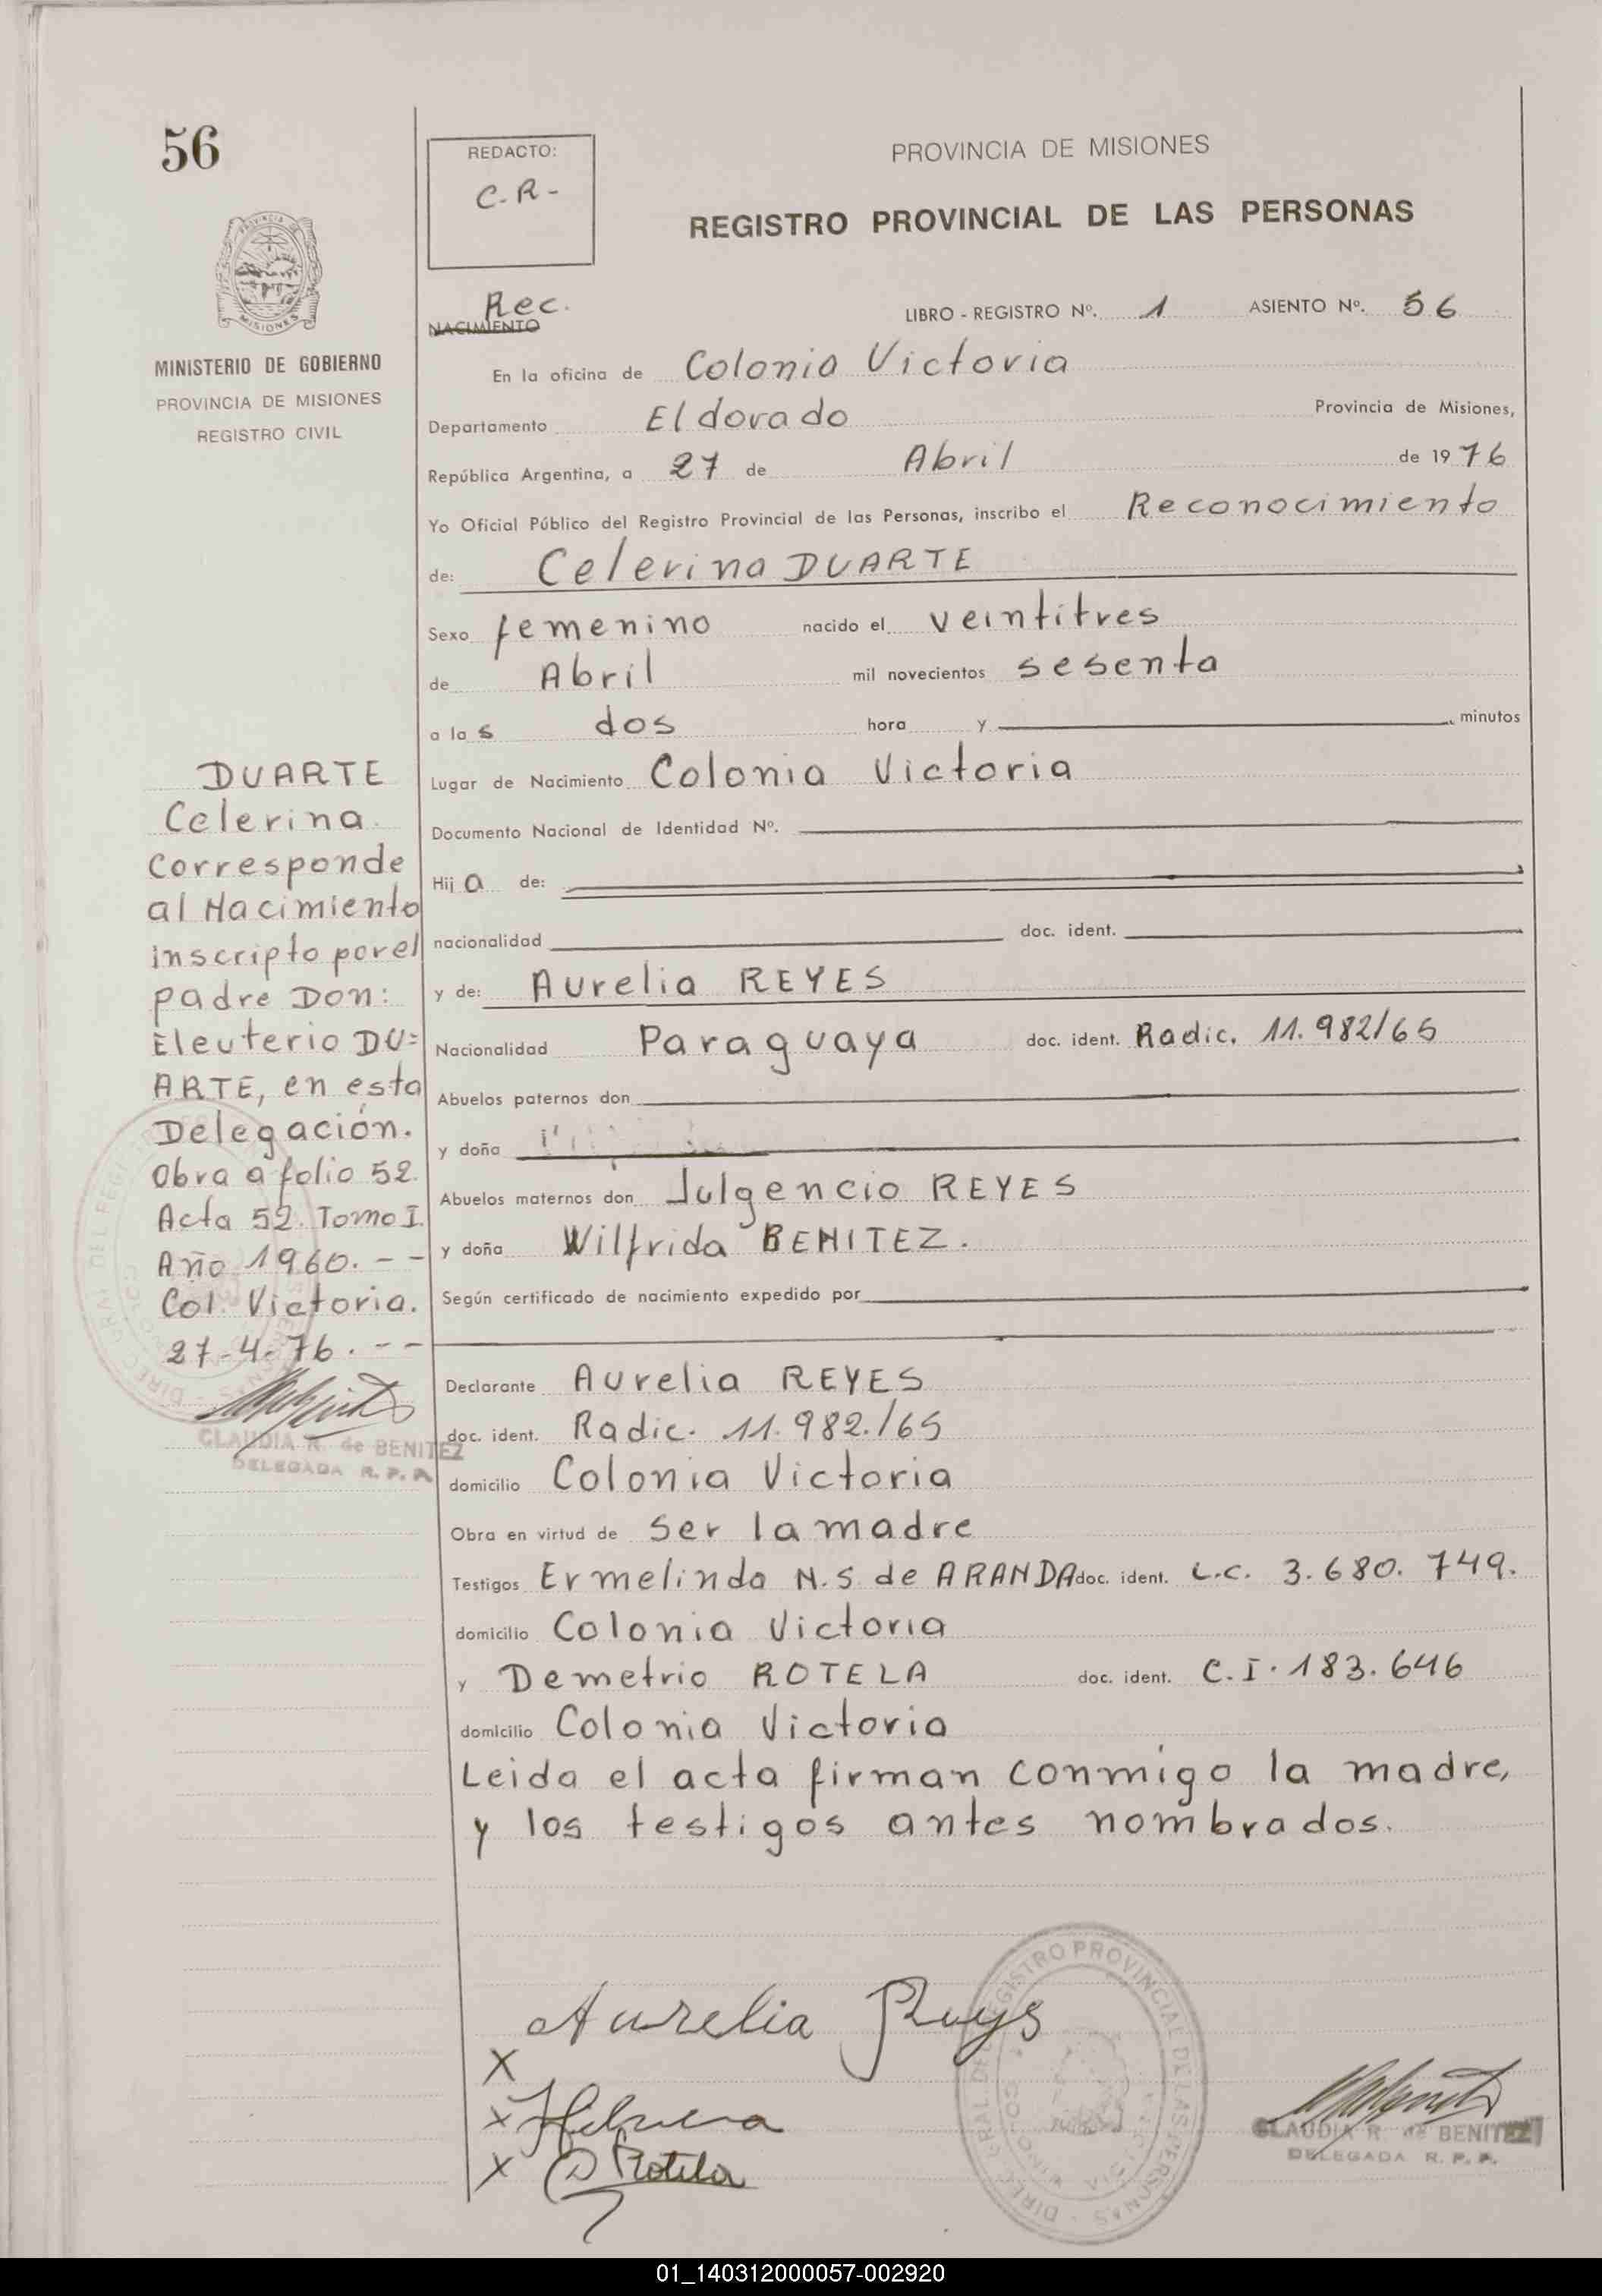 56
REDACTO:
C.R-
PROVINCIA DE MISIONES
REGISTRO PROVINCIAL DE LAS PERSONAS
PROVINCIA
MISIONES
MINISTERIO DE GOBIERNO
PROVINCIA DE MISIONES
REGISTRO CIVIL
Rec.
NACIMIENTO
LIBRO - REGISTRO Nº. 1 ASIENTO Nº. 56
En la oficina de Colonia Victoria
Departamento El dorado Provincia de Misiones,
República Argentina, a 27 de Abril de 1976
Yo Oficial Público del Registro Provincial de las Personas, inscribo el Reconocimiento
de: Celerina DUARTE
Sexo femenino nacido el veintitres
de Abril mil novecientos sesenta
a las dos hora y minutos
Lugar de Nacimiento Colonia Victoria
Documento Nacional de Identidad Nº.
Hija de:
nacionalidad doc. ident.
y de: Aurelia REYES
Nacionalidad Paraguaya doc. ident. Radic. 11.982/65
Abuelos paternos don
y doña
Abuelos maternos don Julgencio REYES
y doña Wilfrida BENITEZ.
Según certificado de nacimiento expedido por
Declarante Aurelia REYES
doc. ident. Radic. 11.982./65
domicilio Colonia Victoria
Obra en virtud de ser la madre
Testigos Ermelinda N.S. de ARANDA doc. ident. L.C. 3.680.749.
domicilio Colonia Victoria
y Demetrio ROTELA doc. ident. C.I. 183.646
domicilio Colonia Victoria
Leida el acta firman conmigo la madre,
y los testigos antes nombrados.
DUARTE
Celerina
Corresponde
al Nacimiento
inscripto por el
padre Don:
Eleuterio DU=
ARTE, en esta
Delegación.
Obra a folio 52.
Acta 52. Tomo I.
Año 1960. - -
Col. Victoria.
27-4-76. - -
CLAUDIA R. de BENITEZ
DELEGADA R. P. P.
Aurelia Reys
X
X
X D Rotela
DIREC. GRAL. DEL REGISTRO PROVINCIAL DE LAS PERSONAS
CLAUDIA R. de BENITEZ
DELEGADA R. P. P.
01_140312000057-002920